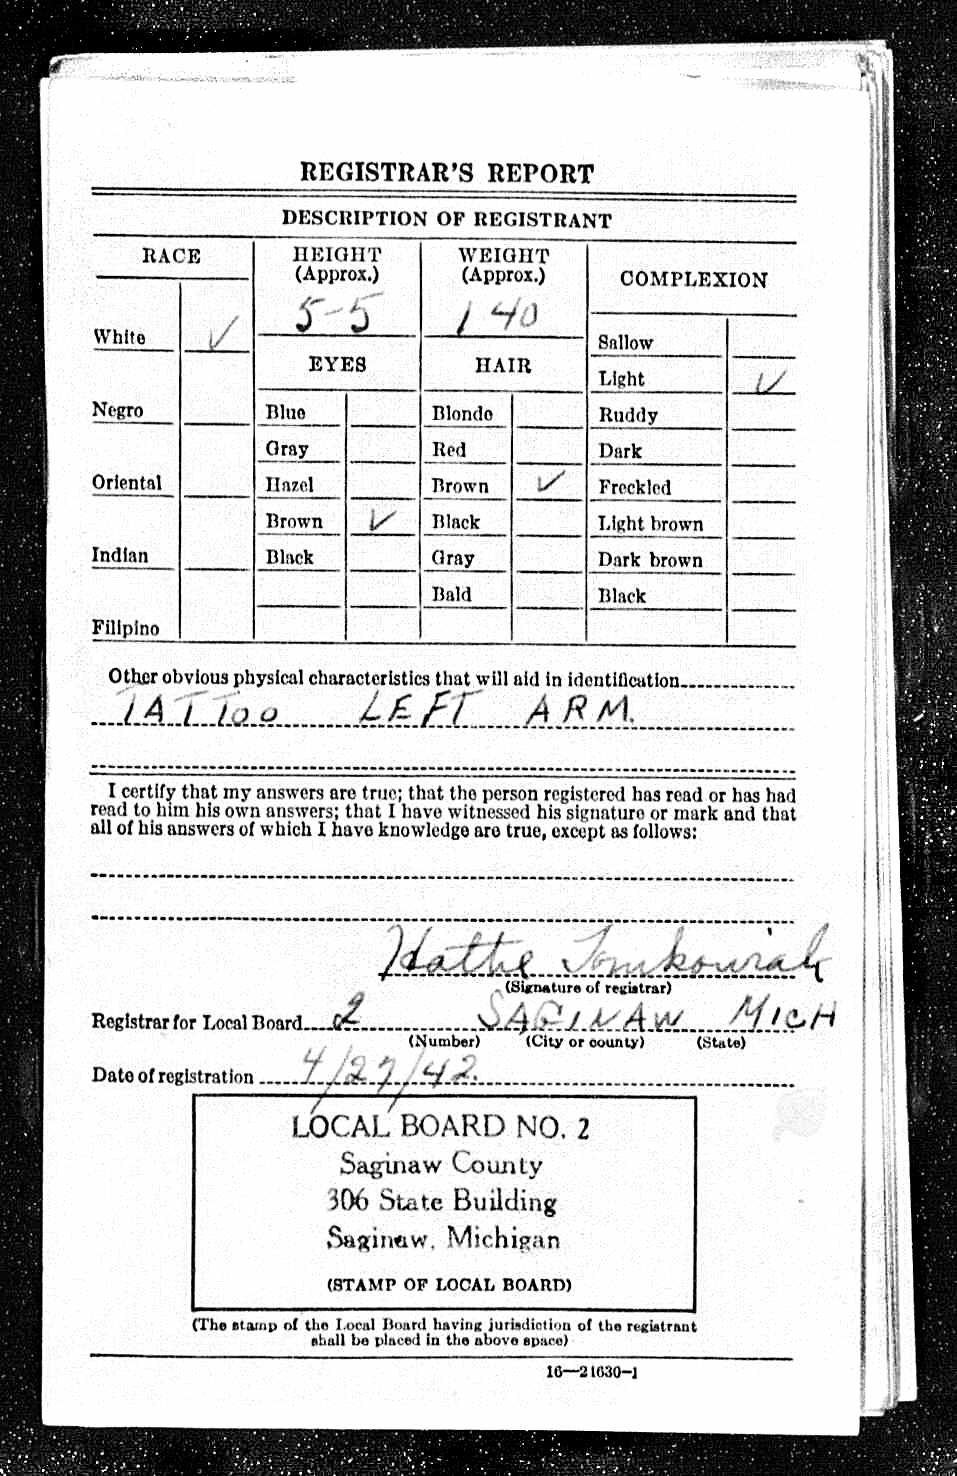 REGISTRAR'S REPORT
DESCRIPTION OF REGISTRANT
RACE
HEIGHT
(Approx.)
WEIGHT
(Approx.)
COMPLEXION
5-5
140
White ✓
Sallow
EYES
HAIR
Light ✓
Negro
Blue
Blonde
Ruddy
Gray
Red
Dark
Oriental
Hazel
Brown ✓
Freckled
Brown ✓
Black
Light brown
Indian
Black
Gray
Dark brown
Bald
Black
Filipino
Other obvious physical characteristics that will aid in identification
TATTOO LEFT ARM.
I certify that my answers are true; that the person registered has read or has had
read to him his own answers; that I have witnessed his signature or mark and that
all of his answers of which I have knowledge are true, except as follows:
Hattie Tomkowiak
(Signature of registrar)
Registrar for Local Board 2 SAGINAW MICH
(Number) (City or county) (State)
Date of registration 4/27/42.
LOCAL BOARD NO. 2
Saginaw County
306 State Building
Saginaw, Michigan
(STAMP OF LOCAL BOARD)
(The stamp of the Local Board having jurisdiction of the registrant
shall be placed in the above space)
16—21630-1